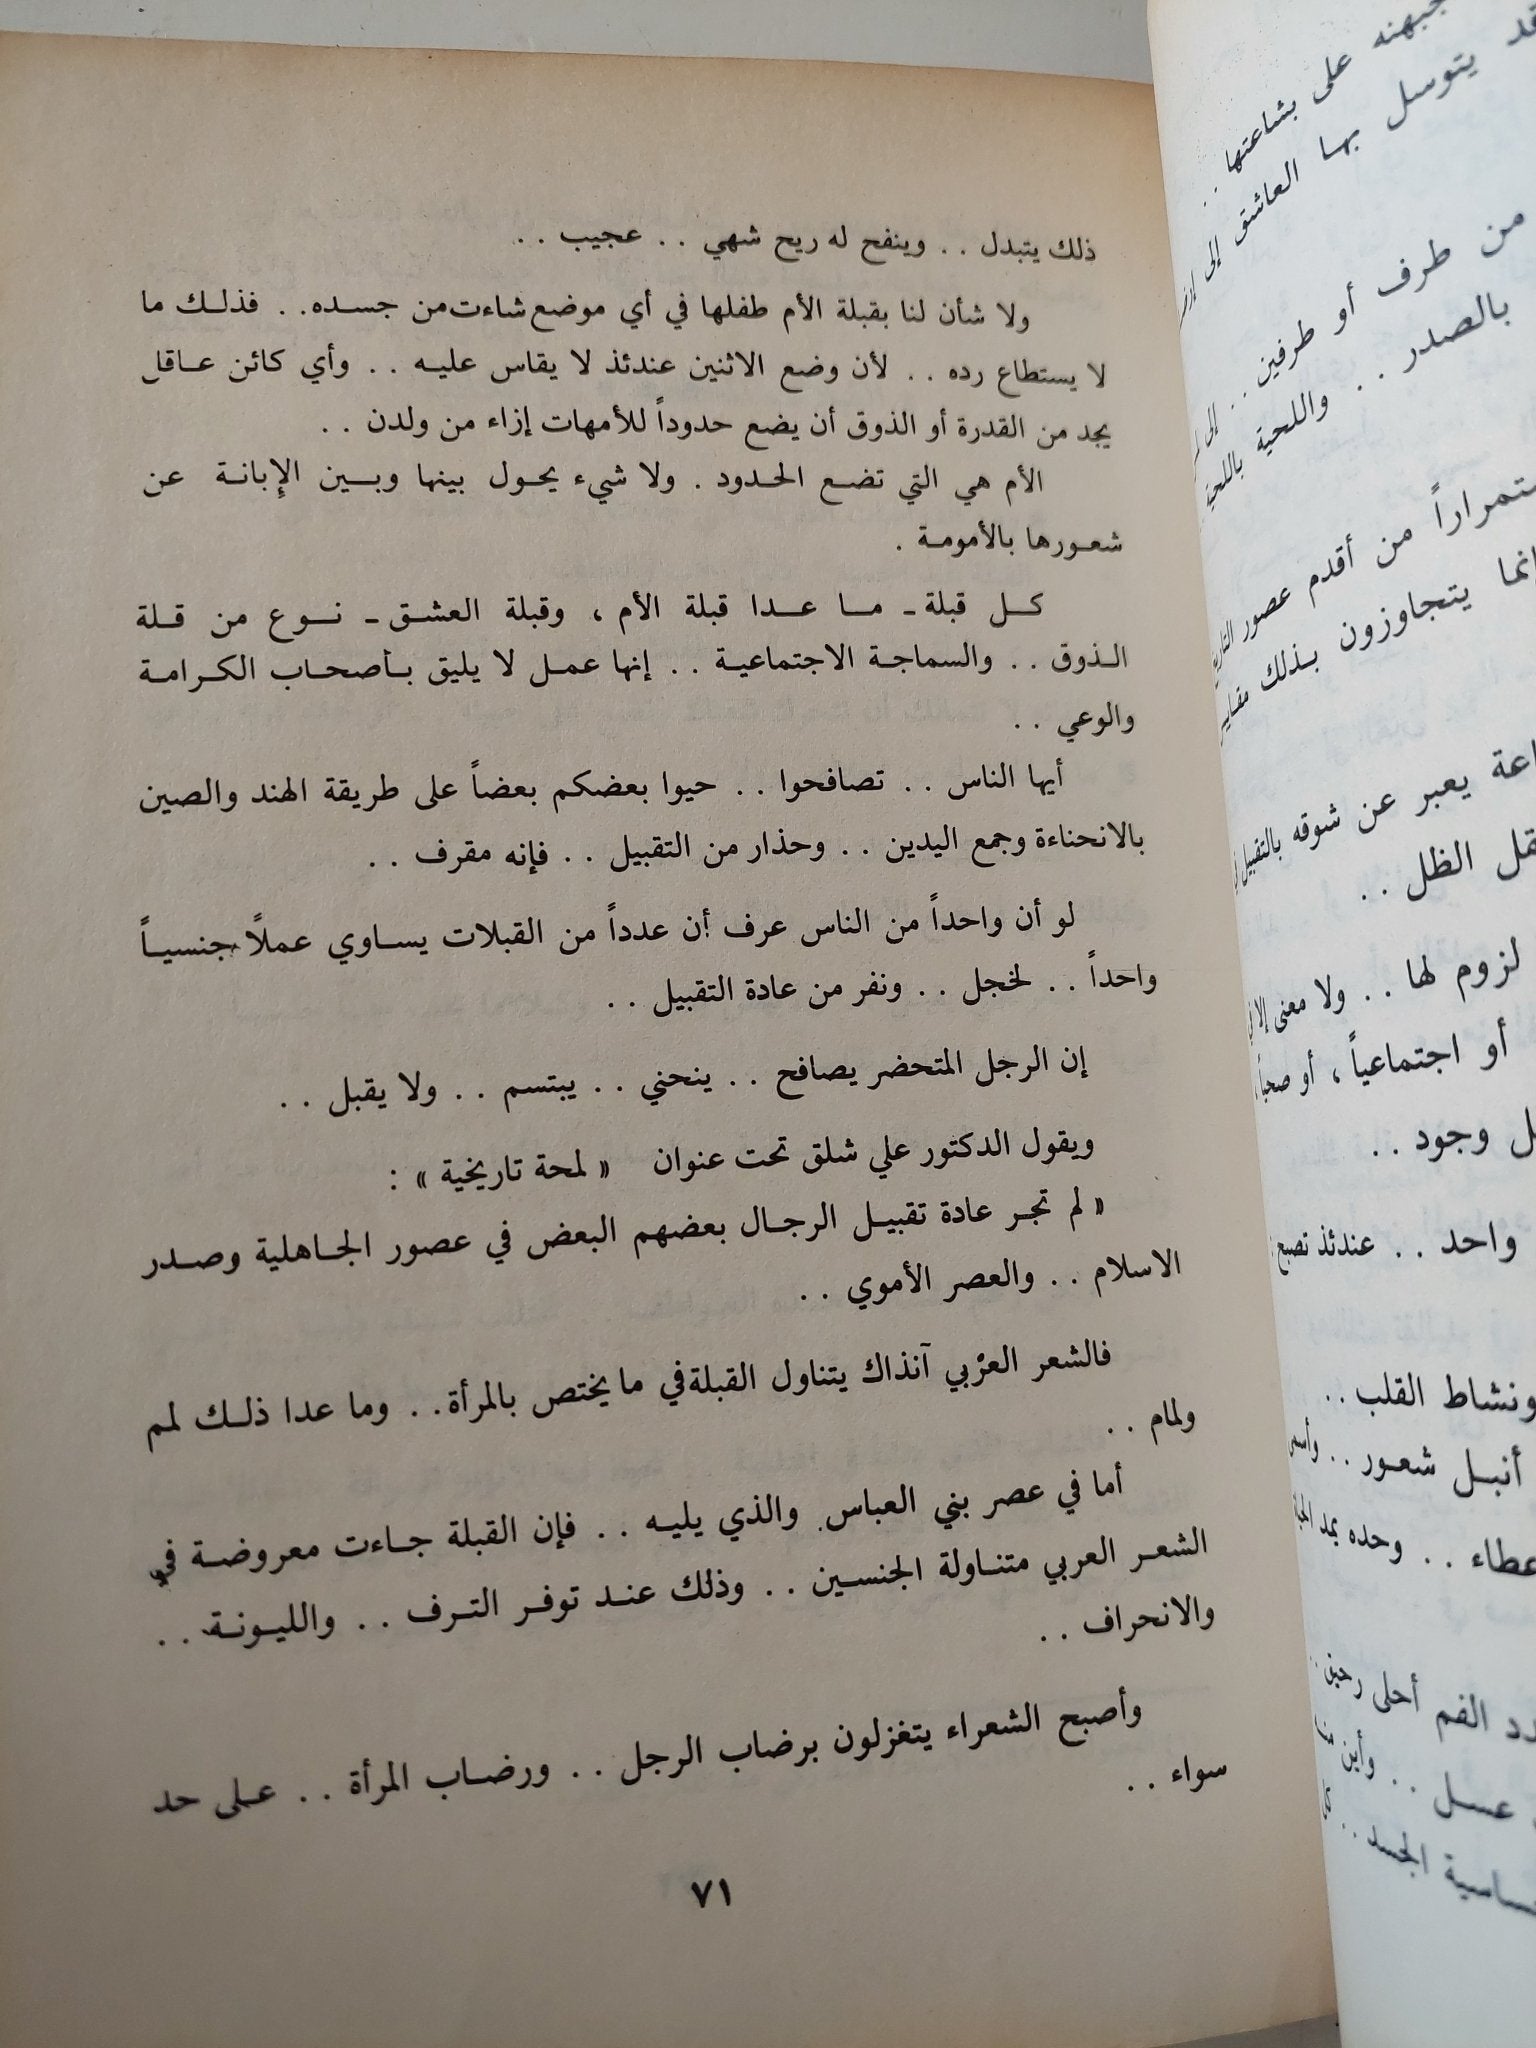 ذلك يتبدل . . وينفح له ريح شهي . . عجيب . .
ولا شأن لنا بقبلة الأم طفلها في أي موضع شاءت من جسده . . فذلك ما
لا يستطاع رده . . لأن وضع الاثنين عندئذ لا يقاس عليه . . وأي كائن عاقل
يجد من القدرة أو الذوق أن يضع حدوداً للأمهات إزاء من ولدن . .
الأم هي التي تضع الحدود . ولا شيء يحول بينها وبين الإبانة عن
شعورها بالأمومة .
كل قبلة ـ ما عدا قبلة الأم ، وقبلة العشق ـ نوع من قلة
الذوق . . والسماجة الاجتماعية . . إنها عمل لا يليق بأصحاب الكرامة
والوعي . .
أيها الناس . . تصافحوا . . حيوا بعضكم بعضاً على طريقة الهند والصين
بالانحناءة وجمع اليدين . . وحذار من التقبيل . . فإنه مقرف . .
لو أن واحداً من الناس عرف أن عدداً من القبلات يساوي عملاً جنسياً
واحداً . . لخجل . . ونفر من عادة التقبيل . .
إن الرجل المتحضر يصافح . . ينحني . . يبتسم . . ولا يقبل . .
ويقول الدكتور علي شلق تحت عنوان « لمحة تاريخية » :
« لم تجر عادة تقبيل الرجال بعضهم البعض في عصور الجاهلية وصدر
الاسلام . . والعصر الأموي . .
فالشعر العرْبي آنذاك يتناول القبلة في ما يختص بالمرأة . . وما عدا ذلك لم
ولمام . .
أما في عصر بني العباس والذي يليه . . فإن القبلة جاءت معروضة في
الشعر العربي متناولة الجنسين . . وذلك عند توفر الترف . . والليونة . .
والانحراف . .
وأصبح الشعراء يتغزلون برضاب الرجل . . ورضاب المرأة . . على حد
سواء . .
٧١
على بشاعتها . .
يتوسل بها العاشق إلى
من طرف أو طرفين . . إلى
بالصدر . . واللحية باللحية
من أقدم عصور
يتجاوزون بذلك
يعبر عن شوقه بالتقبيل
الظل . .
لزوم لها . . ولا معنى إلا في
أو اجتماعياً ، أو
وجود . .
واحد . . عندئذ تصبح
ونشاط القلب . .
أنبل شعور . . وأسمى
وحده بمد
الفم أحلى
عسل . . وأين
الجسد . .